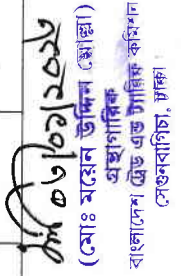 (মোঃ ময়েন উদ্দিন মোল্লা)
গ্রন্থাগারিক
বাংলাদেশ ট্রেড এন্ড ট্যারিফ কমিশন
সেগুনবাগিচা, ঢাকা।